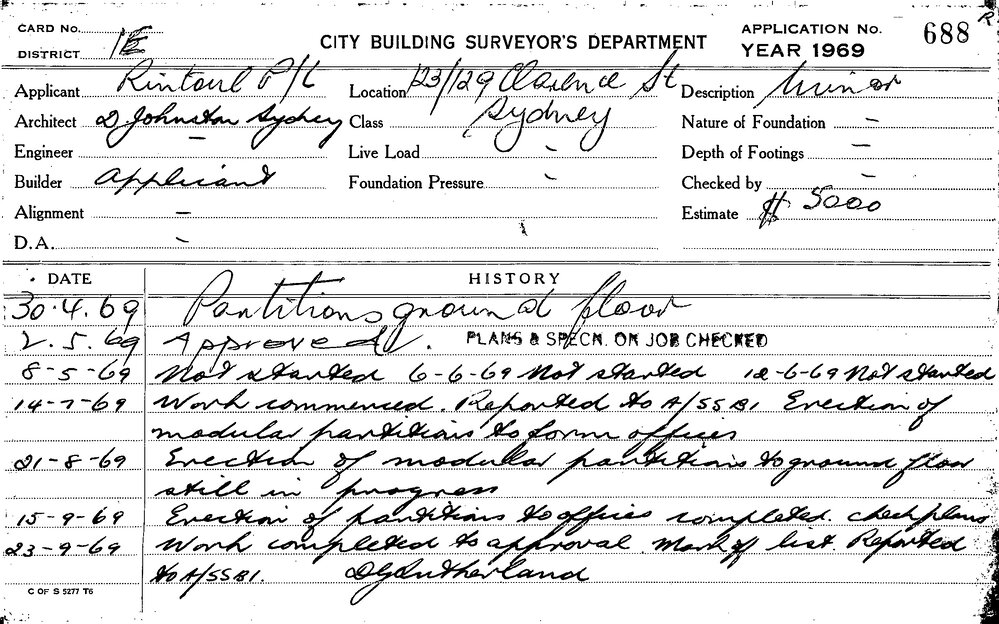 CARD No.
DISTRICT 1E
CITY BUILDING SURVEYOR'S DEPARTMENT
APPLICATION No. 688 R
YEAR 1969
Applicant Rintoul P/L Location 123/129 Clarence St Description Minor
Architect D Johnston Sydney Class Sydney Nature of Foundation —
Engineer — Live Load - Depth of Footings —
Builder Applicant Foundation Pressure - Checked by -
Alignment — Estimate $ 5000
D.A. -
DATE HISTORY
30.4.69 Partitions ground floor
2.5.69 Approved. PLANS & SPECN. ON JOB CHECKED
8-5-69 Not started 6-6-69 Not started 12-6-69 Not started
14-7-69 Work commenced. Reported to A/SSBI Erection of
modular partitions to form offices
21-8-69 Erection of modular partitions to ground floor
still in progress
15-9-69 Erection of partitions to offices completed. Check plans
23-9-69 Work completed to approval. Mark off list. Reported
to A/SSBI. DGSutherland
C OF S 5277 T6